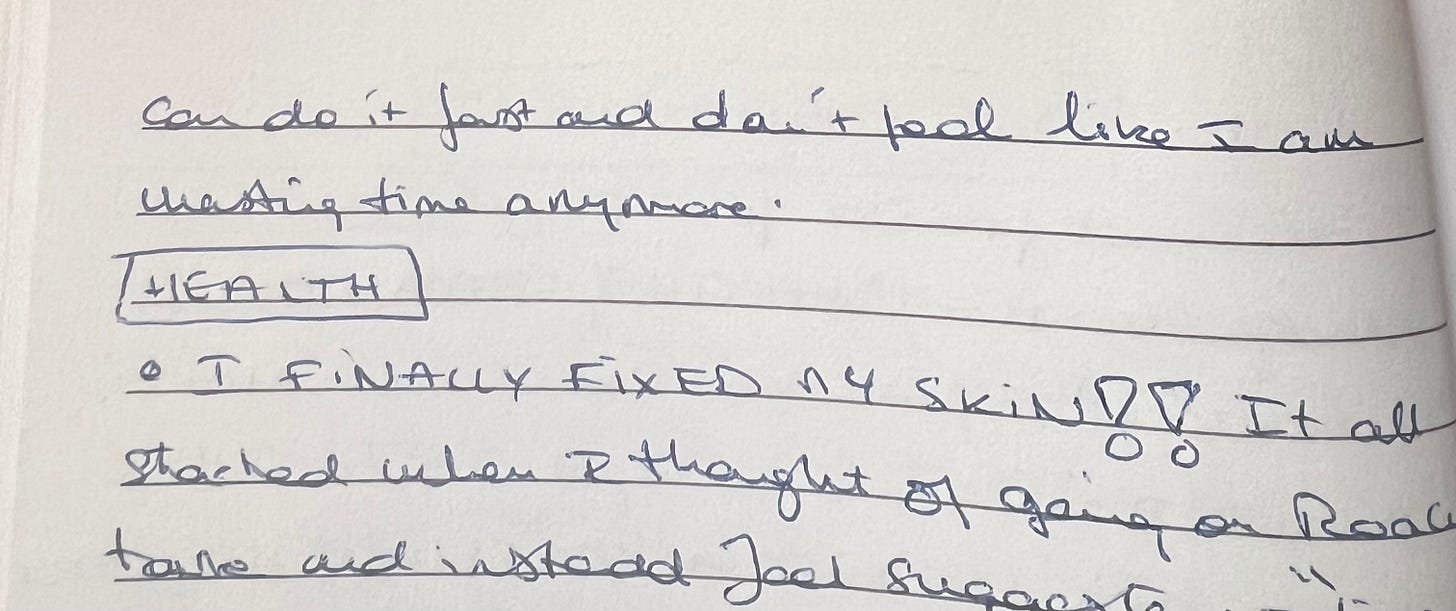 can do it fast and don't feel like I am
wasting time anymore.
HEALTH
• I FINALLY FIXED MY SKIN!! It all
started when I thought of going on Roac
tane and instead Joel